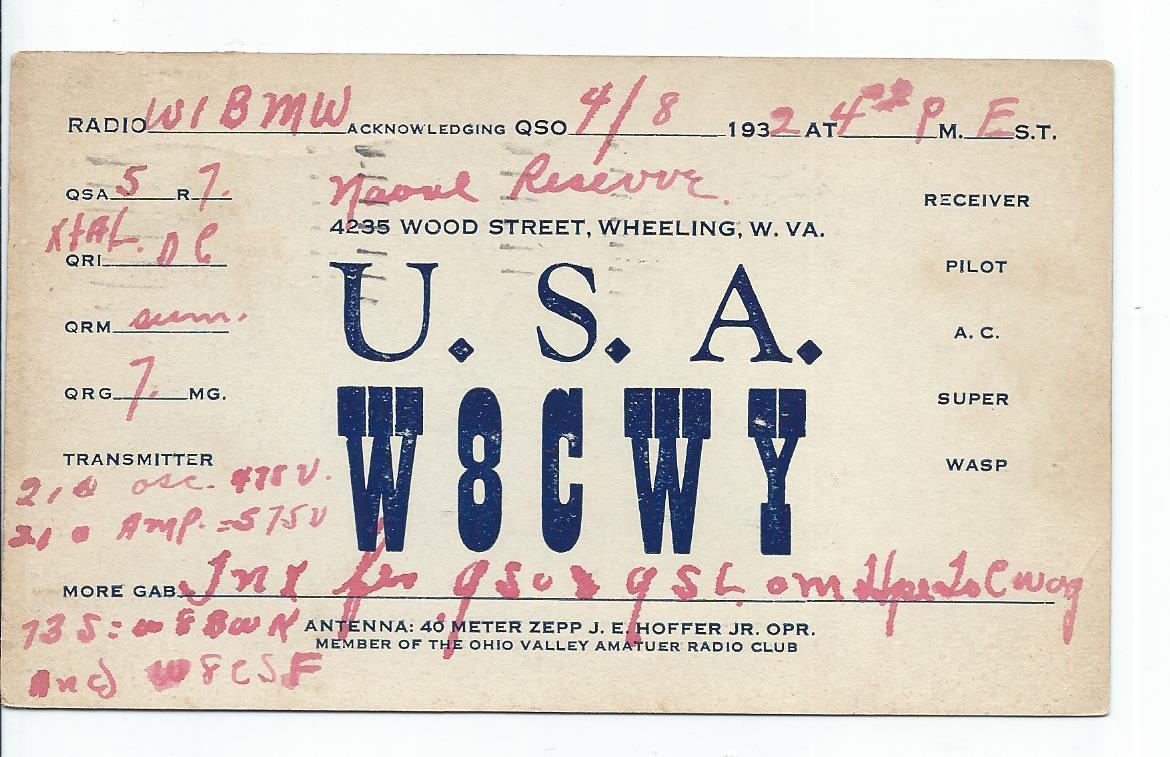 RADIO W1BMW ACKNOWLEDGING QSO 4/8 1932 AT 4 P M. E S.T.
QSA 5 R 7.
Naval Reserve.
RECEIVER
4235 WOOD STREET, WHEELING, W. VA.
XtAL. DC
QRI
PILOT
U. S. A.
QRM sum.
A. C.
QRG 7. MG.
SUPER
W8CWY
TRANSMITTER
WASP
210 osc. 475 V.
210 Amp. = 575 V
MORE GAB Tnx fer qso & qSL om Hpe to C
73s: W8BWK
ANTENNA: 40 METER ZEPP J. E. HOFFER JR. OPR.
MEMBER OF THE OHIO VALLEY AMATUER RADIO CLUB
and W8CSF